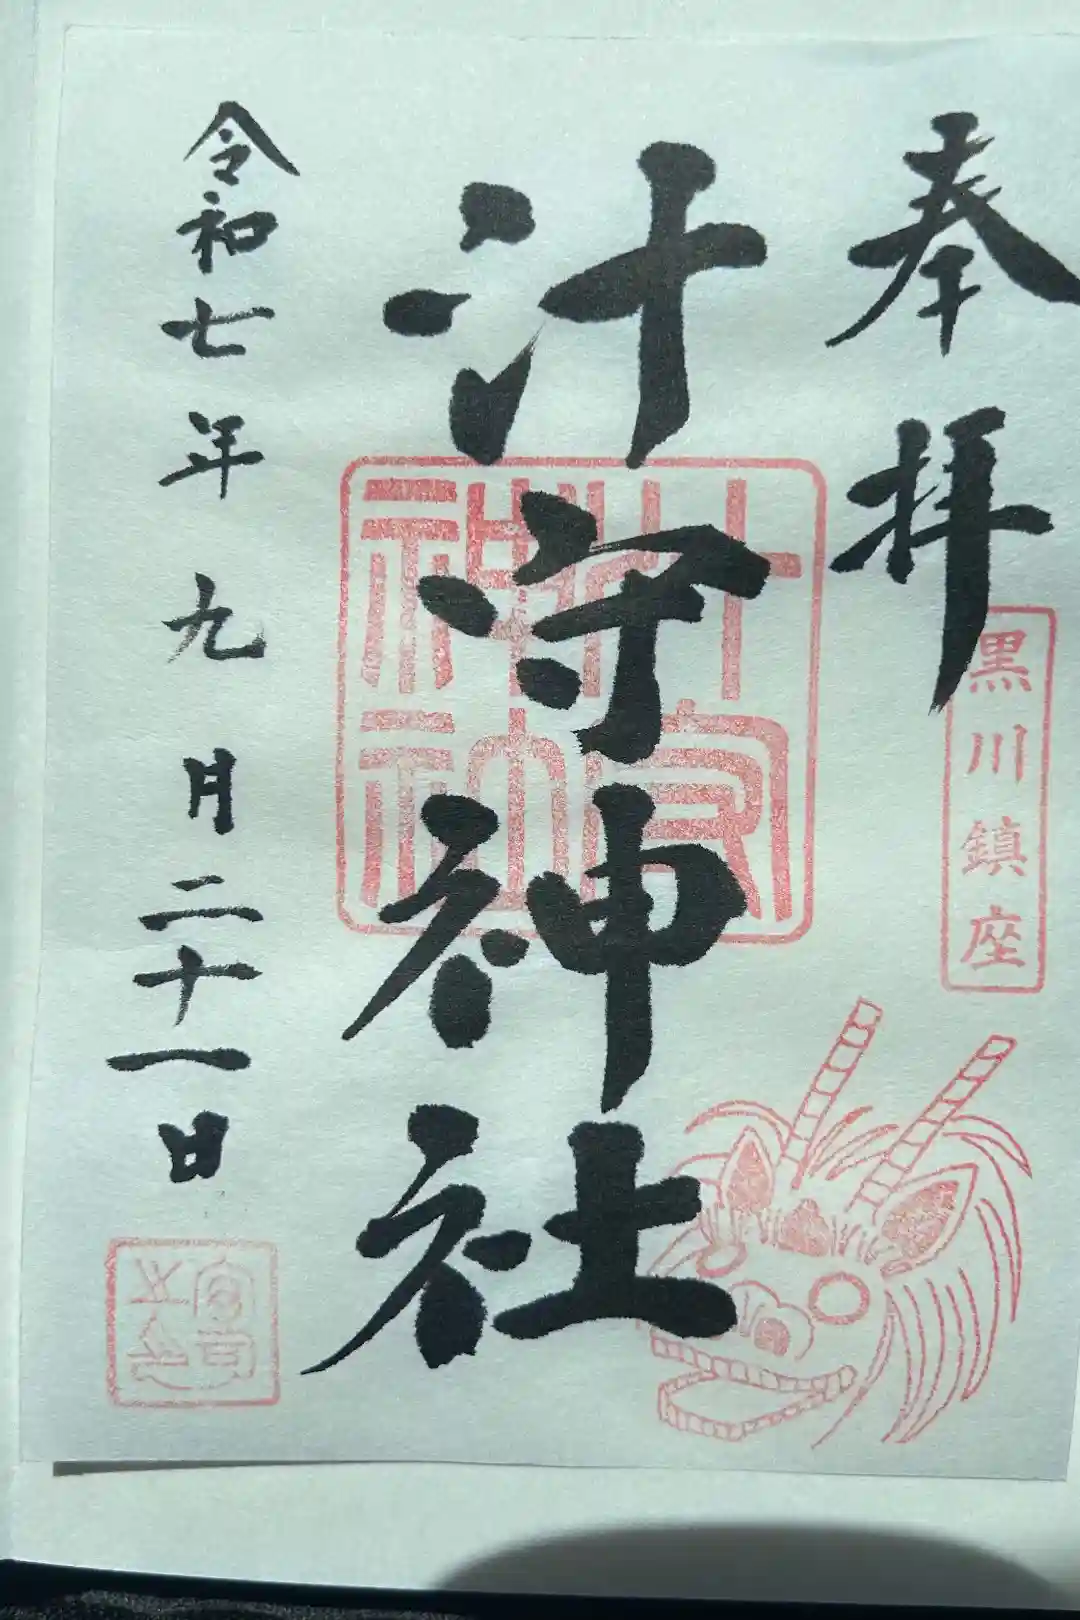 奉拝
黒川鎮座
汁守神社
令和七年九月二十一日